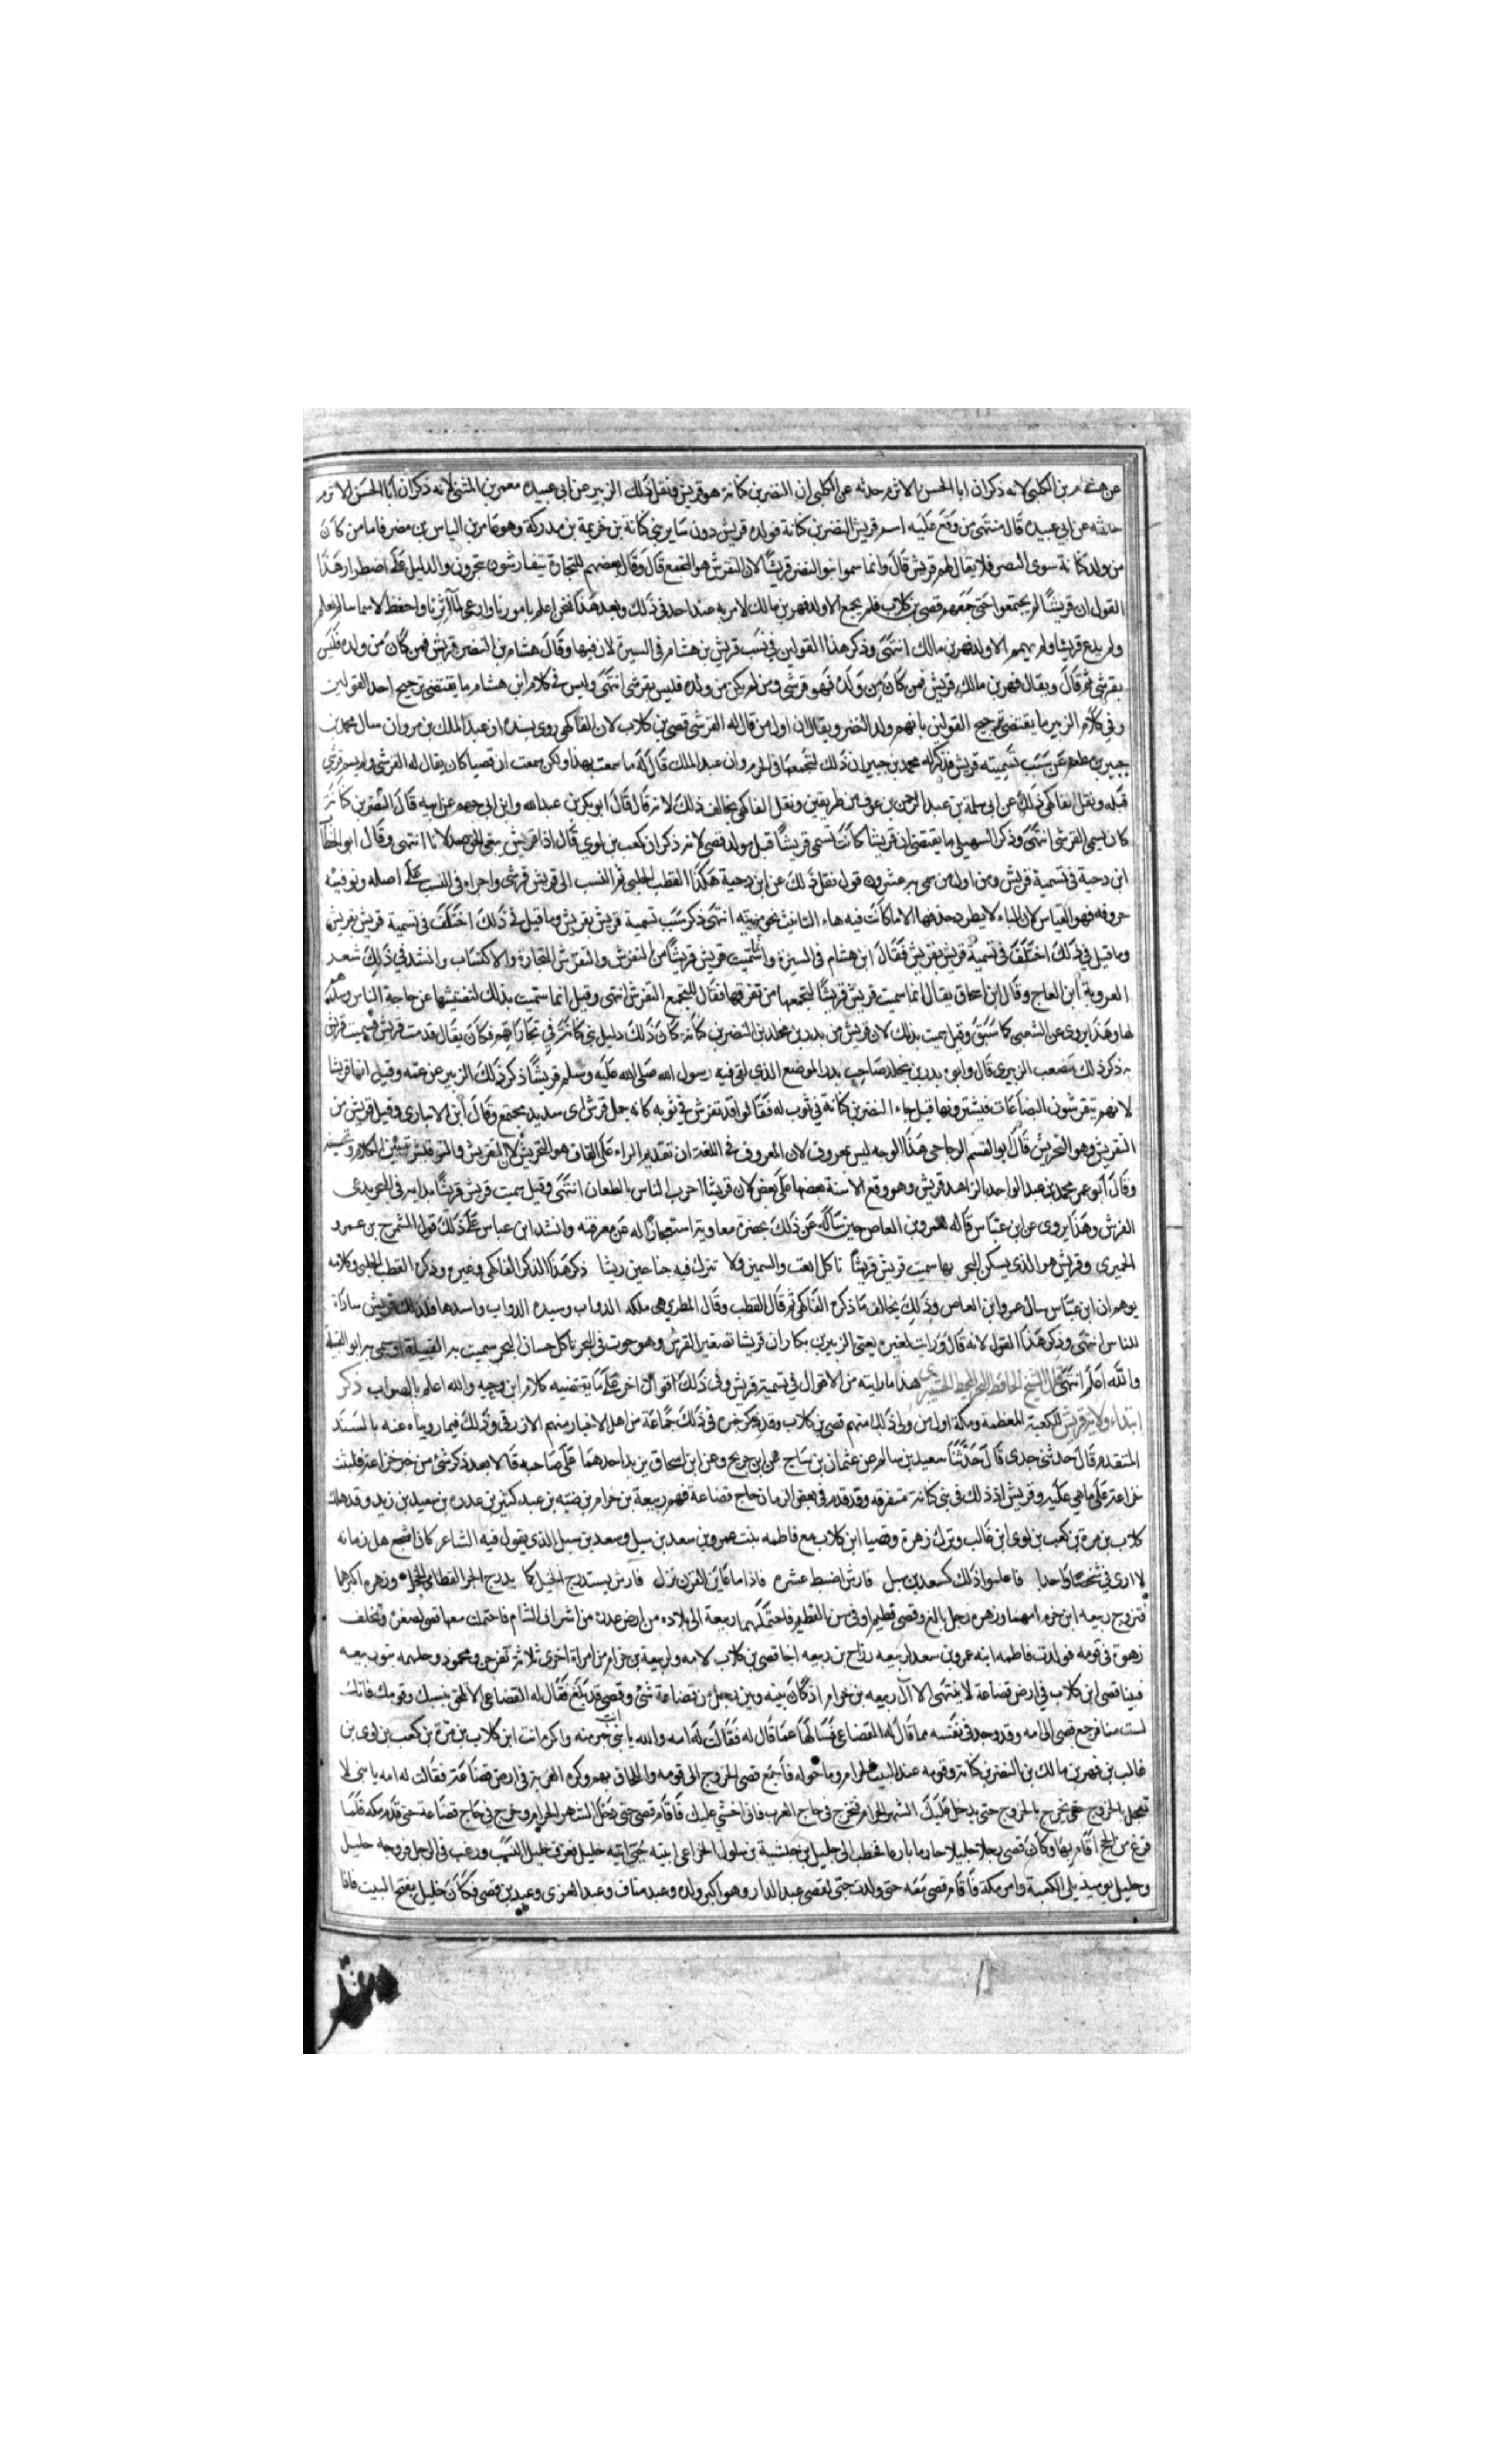 عن هشام بن الكلبي لانه ذكر ان ابا الحسن الاثرم حدثه عن الكلبي ان النضر بن كنانة هو قريش ونقل ذلك الزبير عن ابي عبيده معمر بن المثنى لانه ذكر ان ابا الحسن الاثرم
حدثه عن ابي عبيده قال منتهى من وقع عليه اسم قريش النضر بن كنانة فولده قريش دون ساير بني كنانة بن خزيمة بن مدركة وهو عامر بن الياس بن مضر فاما من كان
من ولد كنانة سوى النضر فلا يقال لهم قريش قال وانما سموا بنو النضر قريشا لان التقرش هو التجمع قال وقال بعضهم للتجارة يتقارشون يتجرون والدليل على اضطرار هذا
القول ان قريشا لم يجتمعوا حتى جمعهم قصي بن كلاب فلم يجمع الا ولد فهر بن مالك لا مرية عند احد في ذلك وبعد هذا فنحن اعلم بامورنا وارعى لمآثرنا واحفظ لاسماسا لم نعلم
ولم يدع قريشا ولم يهم الا ولد فهر بن مالك انتهى وذكر هذا القولين في نسب قريش بن هشام في السيرة لان فيها وقال هشام بن النضر قريش فمن كان من ولده فليس
بقرشي ثم قال ويقال فهر بن مالك قريش فمن كان من ولده فهو قرشي ومن لم يكن من ولده فليس بقرشي انتهى وليس في كلام ابن هشام ما يقتضي ترجيح احد القولين
وفي كلام الزبير ما يقتضي ترجيح القولين بانهم ولد النضر ويقال ان اول من قال له القرشي قصي بن كلاب لان الفاكهي روى بسنده ان عبد الملك بن مروان سال محمد بن
جبير بن مطعم عن سبب تسميته قريش فذكر له محمد بن جبير ان ذلك لتجمعها في الحرم وان عبد الملك قال له ما سمعت بهذا ولكن سمعت ان قصيا كان يقال له القرشي ولم يسم قرشي
قبله ونقل الفاكهي ذلك عن ابي سلمة بن عبد الرحمن بن عوف من طريقين ونقل الفاكهي يخالف ذلك لانه قال قال ابو بكر بن عبد الله وابن ابي جهم عن ابيه قال النضر بن كنانة
كان يسمى القرشي انتهى وذكر السهيلي ما يقتضي ان قريشا كانت تسمى قريشا قبل مولد قصي لانه ذكر ان كعب بن لوي قال اذا قريش يبغي الحق خذلانا انتهى وقال ابو الخطاب
ابن دحية في تسمية قريش ومن اول من سمي به عشرون قوله نقل ذلك عن ابن دحية هكذا القطب الحلبي ثم النسب الى قريش قرشي واجراه في النسب على اصله وتوفيه
حروفه فهو القياس لان الياء لا يطرد حذفها الا ما كانت فيه هاء التانيث نحو مزينه انتهى ذكر سبب تسمية قريش بقريش وما قيل في ذلك اختلف في تسمية قريش بقريش
وما قيل في ذلك اختلف في تسمية قريش بقريش فقال ابن هشام في السيرة وانما سميت قريش قريشا من التقرش والتقرش التجارة والاكتساب وانشد في ذلك شعد
العروبة ابن العاج وقال ابن اسحاق يقال انما سميت قريش قريشا لتجمعها من تفرقها فقال للتجمع التقرش انتهى وقيل انما سميت بذلك لتفتيشها عن حاجة الناس
لها وهذا يروى عن الشعبي كما سبق وقيل سميت بذلك لان قريش من بدر بن مخلد بن النضر بن كنانه كان ذلك دليل بني كنانة في تجاراتهم فكان يقال قدمت قريش فسميت قريش
به ذكر ذلك مصعب الزبيري قال وابوه بدر بن يخلد صاحب بدر الموضع الذي لقي فيه رسول الله صلى الله عليه وسلم قريشا ذكر ذلك الزبير عن عمه وقيل انما قريشا
لانهم يتقرشون البضاعات فيشترونها قيل جاء النضر بن كنانة في ثوب له فقالوا قد تقرش في ثوبه كانه جمل قرش اي سديد مجتمع وقال ابن الانباري وقيل قريش من
التقريش وهو التحريش قال ابو القسم الزجاجي هذا الوجه ليس بمعروف لان المعروف في اللغة ان تقديم الراء على القاف هو التحريش لا التقريش والترقيش تبيين الكلام وتحسينه
وقال ابو عمر محمد بن عبد الواحد الزاهد قريش وهو وقع الاسنة بعضها على بعض لان قريشا احرب الناس بالطعان انتهى وقيل سميت قريش قريشا بدابه في البحر يدعى
القرش وهذا يروى عن ابن عباس قاله لعمرو بن العاص حين ساله عن ذلك بحضرة معاوية استخبارا له عن معرفته وانشد ابن عباس على ذلك قول المشمرج بن عمرو
الحميري وقريش هو الذي يسكن البحر بها سميت قريش قريشا تاكل الغث والسمين ولا تترك فيه جناحين ريشا ذكر هذا الذكر الفاكهي وغيره وذكره القطب الحلبي وكلامه
يوهم ان ابن عباس سال عمرو ابن العاص وذلك يخالف ما ذكره الفاكهي ثم قال القطب وقال المطرزي هي ملكه الدواب وسيده الدواب واسدها فلذلك قريش سادة
للناس انتهى وذكر هذا القول لانه قال ورايت لغيره يعني الزبير بن بكار ان قريشا تصغير القرش وهو حوت في البحر تاكل حسان البحر سميت به القبيلة او سمي به ابو القبيلة
والله اعلم انتهى قال الشيخ الحافظ هذا ما رايته من الاقوال في تسمية قريش وفي ذلك اقوال اخر على ما يقتضيه كلام ابن دحيه والله اعلم بالصواب ذكر
ابتداء ولاية قريش للكعبة المعظمة ومكة اول من ولي ذلك منهم قصي بن كلاب وقد ذكر خبره في ذلك جماعة من اهل الاخبار منهم الازرقي وذلك فيما رويناه عنه بالسند
المتقدم قال حدثني جدي قال حدثنا سعيد بن سالم عن عثمان بن ساج عن ابن جريج وعن ابن اسحاق يزيد احدهما على صاحبه قالا بعد ذكر شي من خبر خزاعة فلبثت
خزاعة على ما هي عليه وقريش اذ ذلك في بني كنانة متفرقه وقد قدم في بعض الزمان حاج قضاعة فهم ربيعة بن حرام بن ضنيه بن عبد كثير بن عدره بن سعيد بن زيد وقد هلك
كلاب بن مرة بن كعب بن لوي ابن غالب وترك زهرة وقصيا ابن كلاب مع فاطمه بنت عمرو بن سعد بن سيل وسعد بن سيل الذي يقول فيه الشاعر كان اشجع هل زمانه
لا ارى في شخصا واحدا فاعلموا ذلك كسعد بن سيل فارش اضبط عشره فاذا ما عاين القرن نزل فارش يستدرج الخيل كما يدرج الحر القطامي الحجل وزهره اكبرهما
فتزوج ربيعه ابن حزم امهما وزهره رجل بالغ وقصي فطيم او في سن الفطيم فاحتملهما ربيعة الى بلاده من ارض عدرة من اشراف الشام فاحتملت معها قصي لصغره وتخلف
زهرة في قومه فولدت فاطمه ابنه عمرو بن سعد لربيعه رزاح بن ربيعه اخا قصي بن كلاب لامه ولربيعة بن حرام من امراة اخرى ثلاثة نفر حن ومحمود وجلهمه بنو ربيعه
فبينا قصي ابن كلاب في ارض قضاعة لا ينتمى الا الى ربيعه بن حرام اذ كان بينه وبين رجل من قضاعة شئ وقصي قد بلغ فقال له القضاعي الا تلحق بنسبك وقومك فانك
لست منا فرجع قصي الى امه وقد وجد في نفسه مما قال له القضاعي فسالها عما قال له فقالت له امه والله يا بني خير منه واكرم انت ابن كلاب بن مرة بن كعب بن لوى بن
غالب بن فهر بن مالك بن النضر بن كنانة وقومه عند البيت الحرام وما حوله فاجمع قصي الخروج الى قومه والحاق بهم وكره الغربة في ارض قضاعة فقالت له امه يا بنى لا
تعجل بالخروج حتى يخرج بالخروج حتى يدخل عليك الشهر الحرام فتخرج في حاج العرب فاني اخشي عليك فاقام قصي حتى دخل الشهر الحرام وخرج في حاج قضاعة حتى قدم مكه فلما
فرغ من الحج اقام بها وكان قصي رجلا جليلا حازما بارما فخطب الى حليل بن حبشية بن سلول الخزاعي ابنته حبى ابنيه حليل فعرف حليل النسب ورغب في الرجل فزوجه حليل
وحليل يوميذ يلى الكعبة وامر مكة فاقام قصي معه حتى ولدت حبى لقصي عبد الدار وهو اكبر ولده وعبد مناف وعبد العزى وعبد بن قصي فكان حليل يفتح البيت فاذا